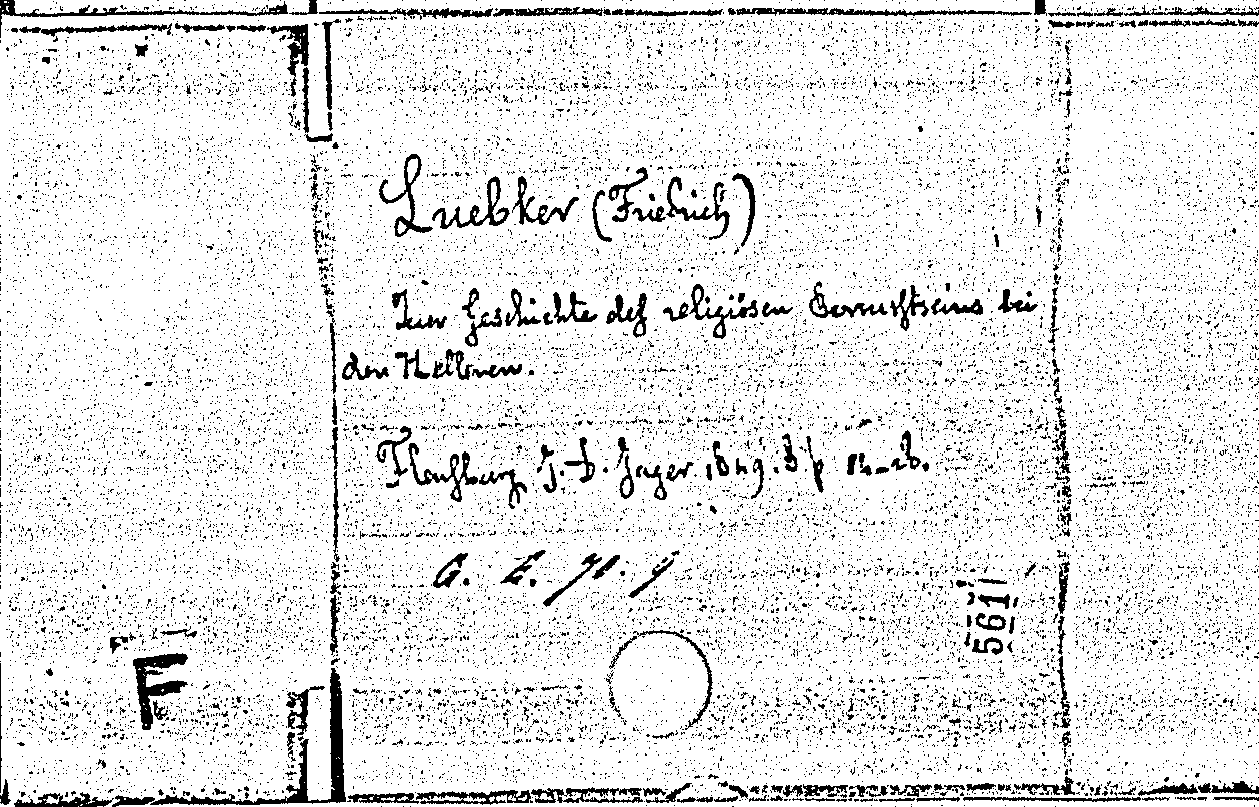 Luebker (Friedrich)
Zur Geschichte des religiösen Bewusstseins bei
den Hellenen.
Flensburg, J. B. Jager 1849. 8° p
5611
F